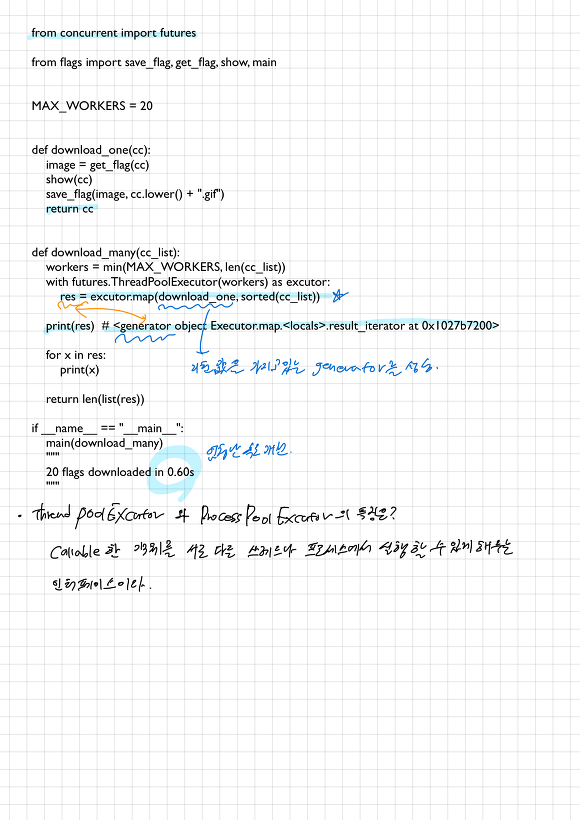 from concurrent import futures
from flags import save_flag, get_flag, show, main
MAX_WORKERS = 20
def download_one(cc):
image = get_flag(cc)
show(cc)
save_flag(image, cc.lower() + ".gif")
return cc
def download_many(cc_list):
workers = min(MAX_WORKERS, len(cc_list))
with futures.ThreadPoolExecutor(workers) as excutor:
res = excutor.map(download_one, sorted(cc_list))
print(res) # <generator object Executor.map.<locals>.result_iterator at 0x1027b7200>
for x in res:
print(x)
리턴 값을 가지고 있는 generator를 생성.
return len(list(res))
if __name__ == "__main__":
main(download_many)
"""
속도 개선.
20 flags downloaded in 0.60s
"""
· Thread pool Excutor 와 Process Pool Excutor 의 특징은?
Callable 한 객체를 서로 다른 쓰레드나 프로세스에서 실행할 수 있게 해주는
인터페이스이다.